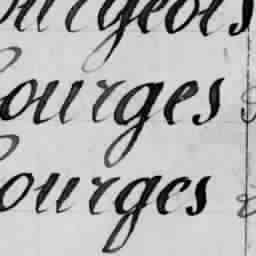 ourgeois
ourges
ourges